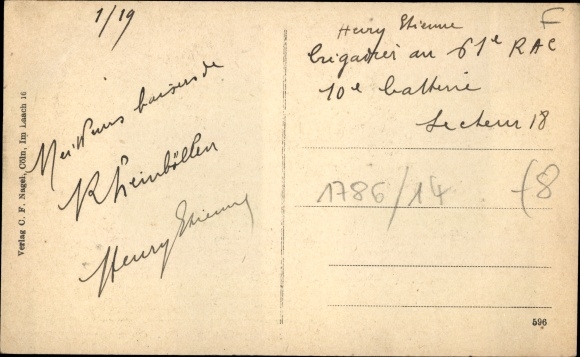 1/19
Meilleurs baisers de
Rheinböllen
Henry Etienne
Verlag C. F. Nagel, Cöln, Im Laach 16
F
Henry Etienne
brigadier au 61e RAC
10e batterie
Secteur 18
1786/14
f8
596